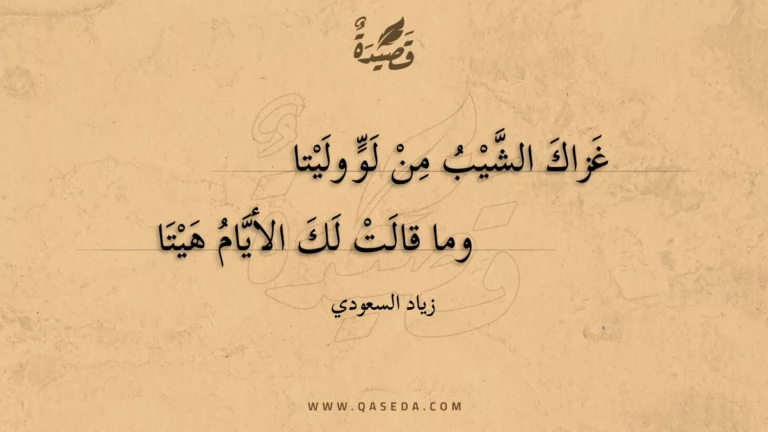 قَصِيْدَةٌ
غَزاكَ الشَّيْبُ مِنْ لَوٍّ ولَيْتا
وما قالَتْ لَكَ الأيَّامُ هَيْتَا
زياد السعودي
WWW.QASEDA.COM